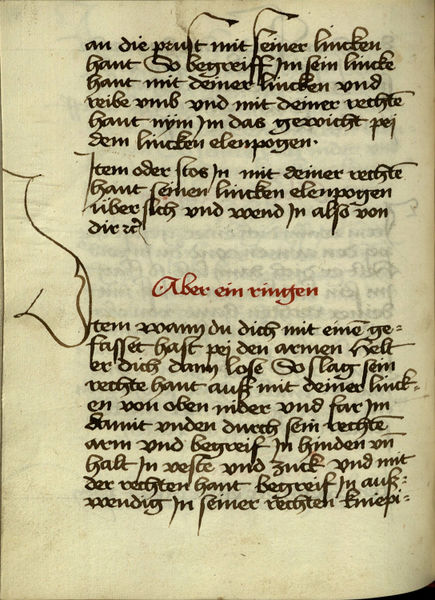 an die prust mit seiner lincken
hant So begreiff Im sein lincke
hant mit deiner lincken vnd
reibe vmb vnd mit deiner rechtē
haut nym Im das gewicht pei
dem lincken elenpogen.
Item oder stos In mit deiner rechtē
hant seinen lincken elenpogen
über sich vnd wend In also von
dir ꝛc
Aber ein ringen
Item wann du dich mit einē ge=
fasset hast pei den armen Helt
er dich dann lose So slag sein
rechte hant auß mit deiner linck-
en von oben nider vnd far Im
damit vnden durch sein rechtē
arm vnd begreif In hinden vn̄
halt In veste vnd zuck vnd mit
der rechten hant begreif In auß=
wendig In seiner rechten kniepi=